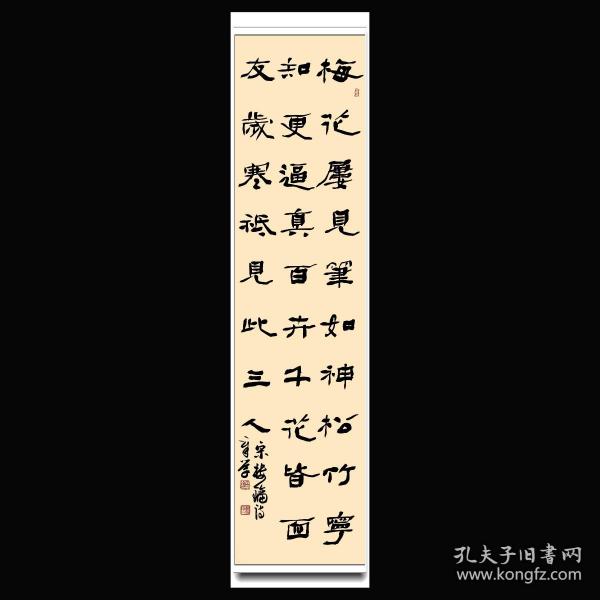 梅花屢見筆如神松竹寧
知更逼真百卉千花皆面
友歲寒祗見此三人
宋楼鑰诗
孔夫子旧書网
www.kongfz.com